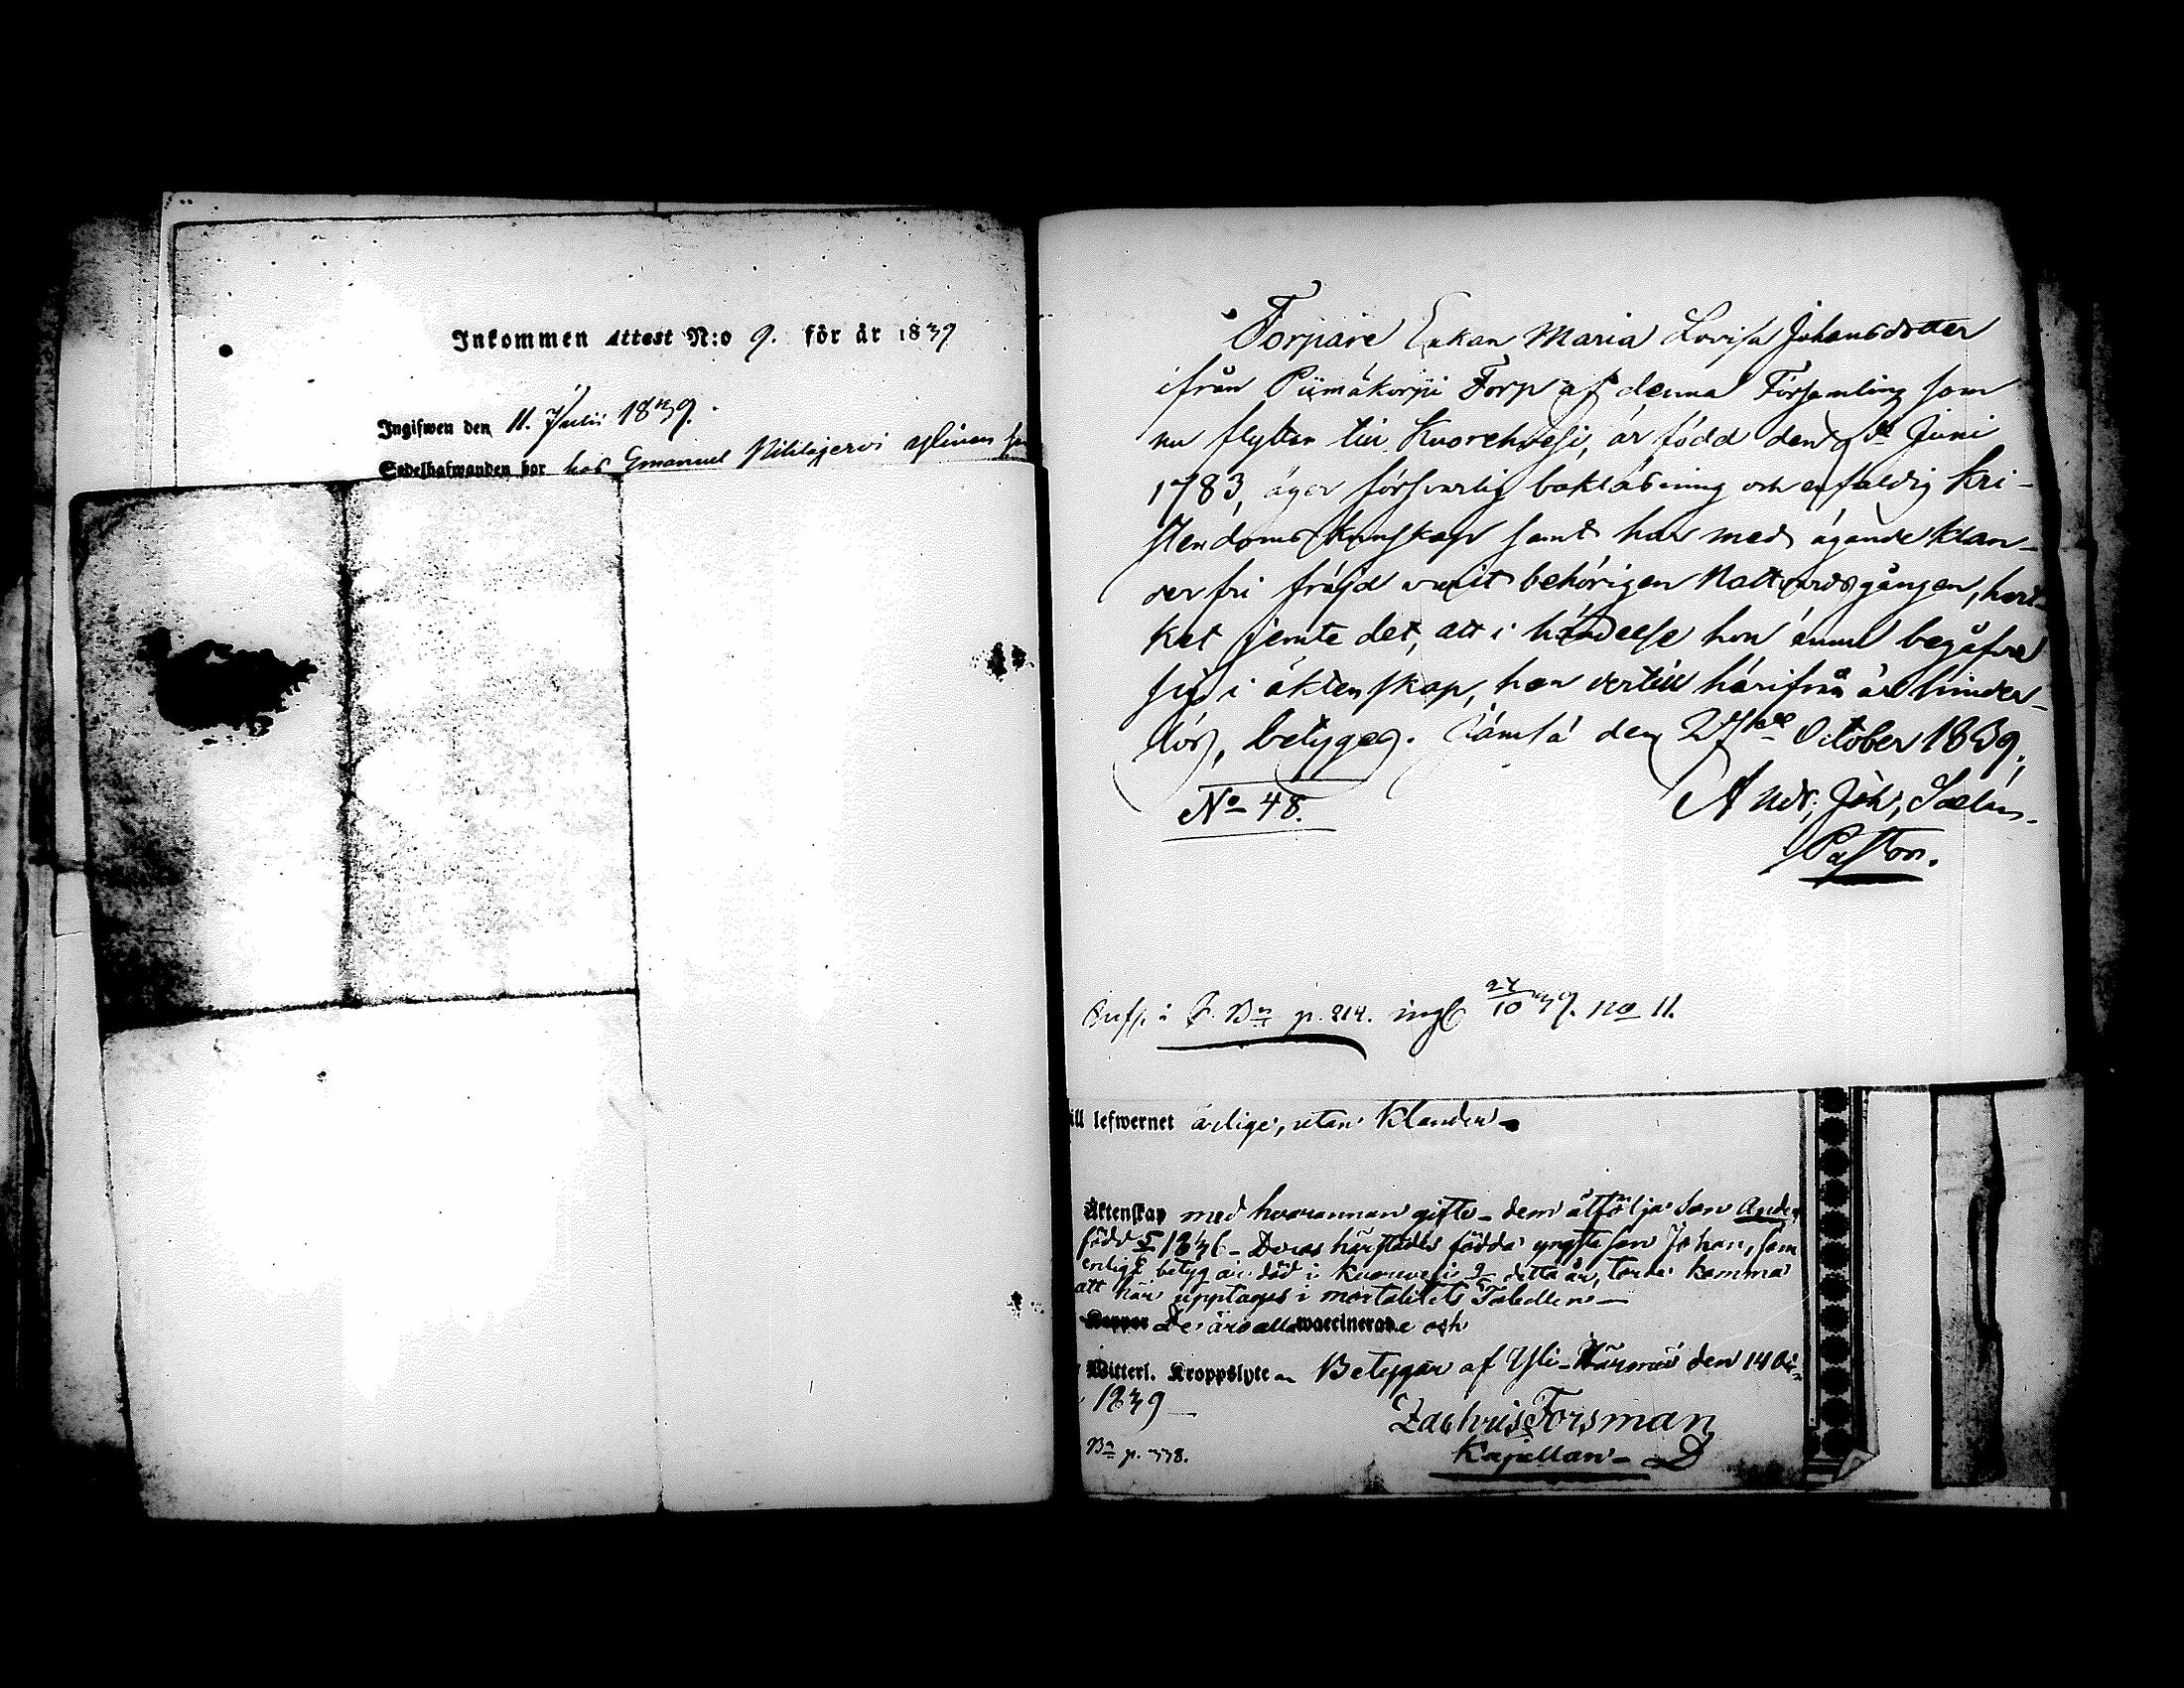 Inkommen Attest N:o 9. för år 1839
Ingifwen den 11. Julii 1839.
Sedelhafwanden bor hos Emanuel
Torpare Enkan Maria Lovisa Johansdotter
ifrån Piimäkorpi Torp af denna Församling som
nu flyttar till Kuorehvesi, är född den Juni
1783, äger försvarlig bokläsning och enfaldig Kri-
stendomskunskap samt har med ägande klan-
derfri fräjd varit behörigen Nattvardsgången, hvil-
ket jemte det, att i händelse hon ännu begåfve
sig i äktenskap, hon dertill härifrån är hinder-
lös, betygas. Jämsä den October 1839.
No 48. And. Joh.
Pastor.
i Bn p. 214. ingl 24/10 39. no 11.
till lefwernet ärlige, utan klander
Äktenskap med hvarannan gifte - dem åtföljer Son
född 5 - Deras härstädes födda yngsta son Johan, som
enligt betyg är död i detta år, torde komma
att här upptagas i mortalitets Tabellen -
Koppor De äro alla vaccinerade och
Witterl. Kroppslyte Betygar af Yli-Härmä den 14
1839
Zachris Forsman
Bn p. 338. Kapellan